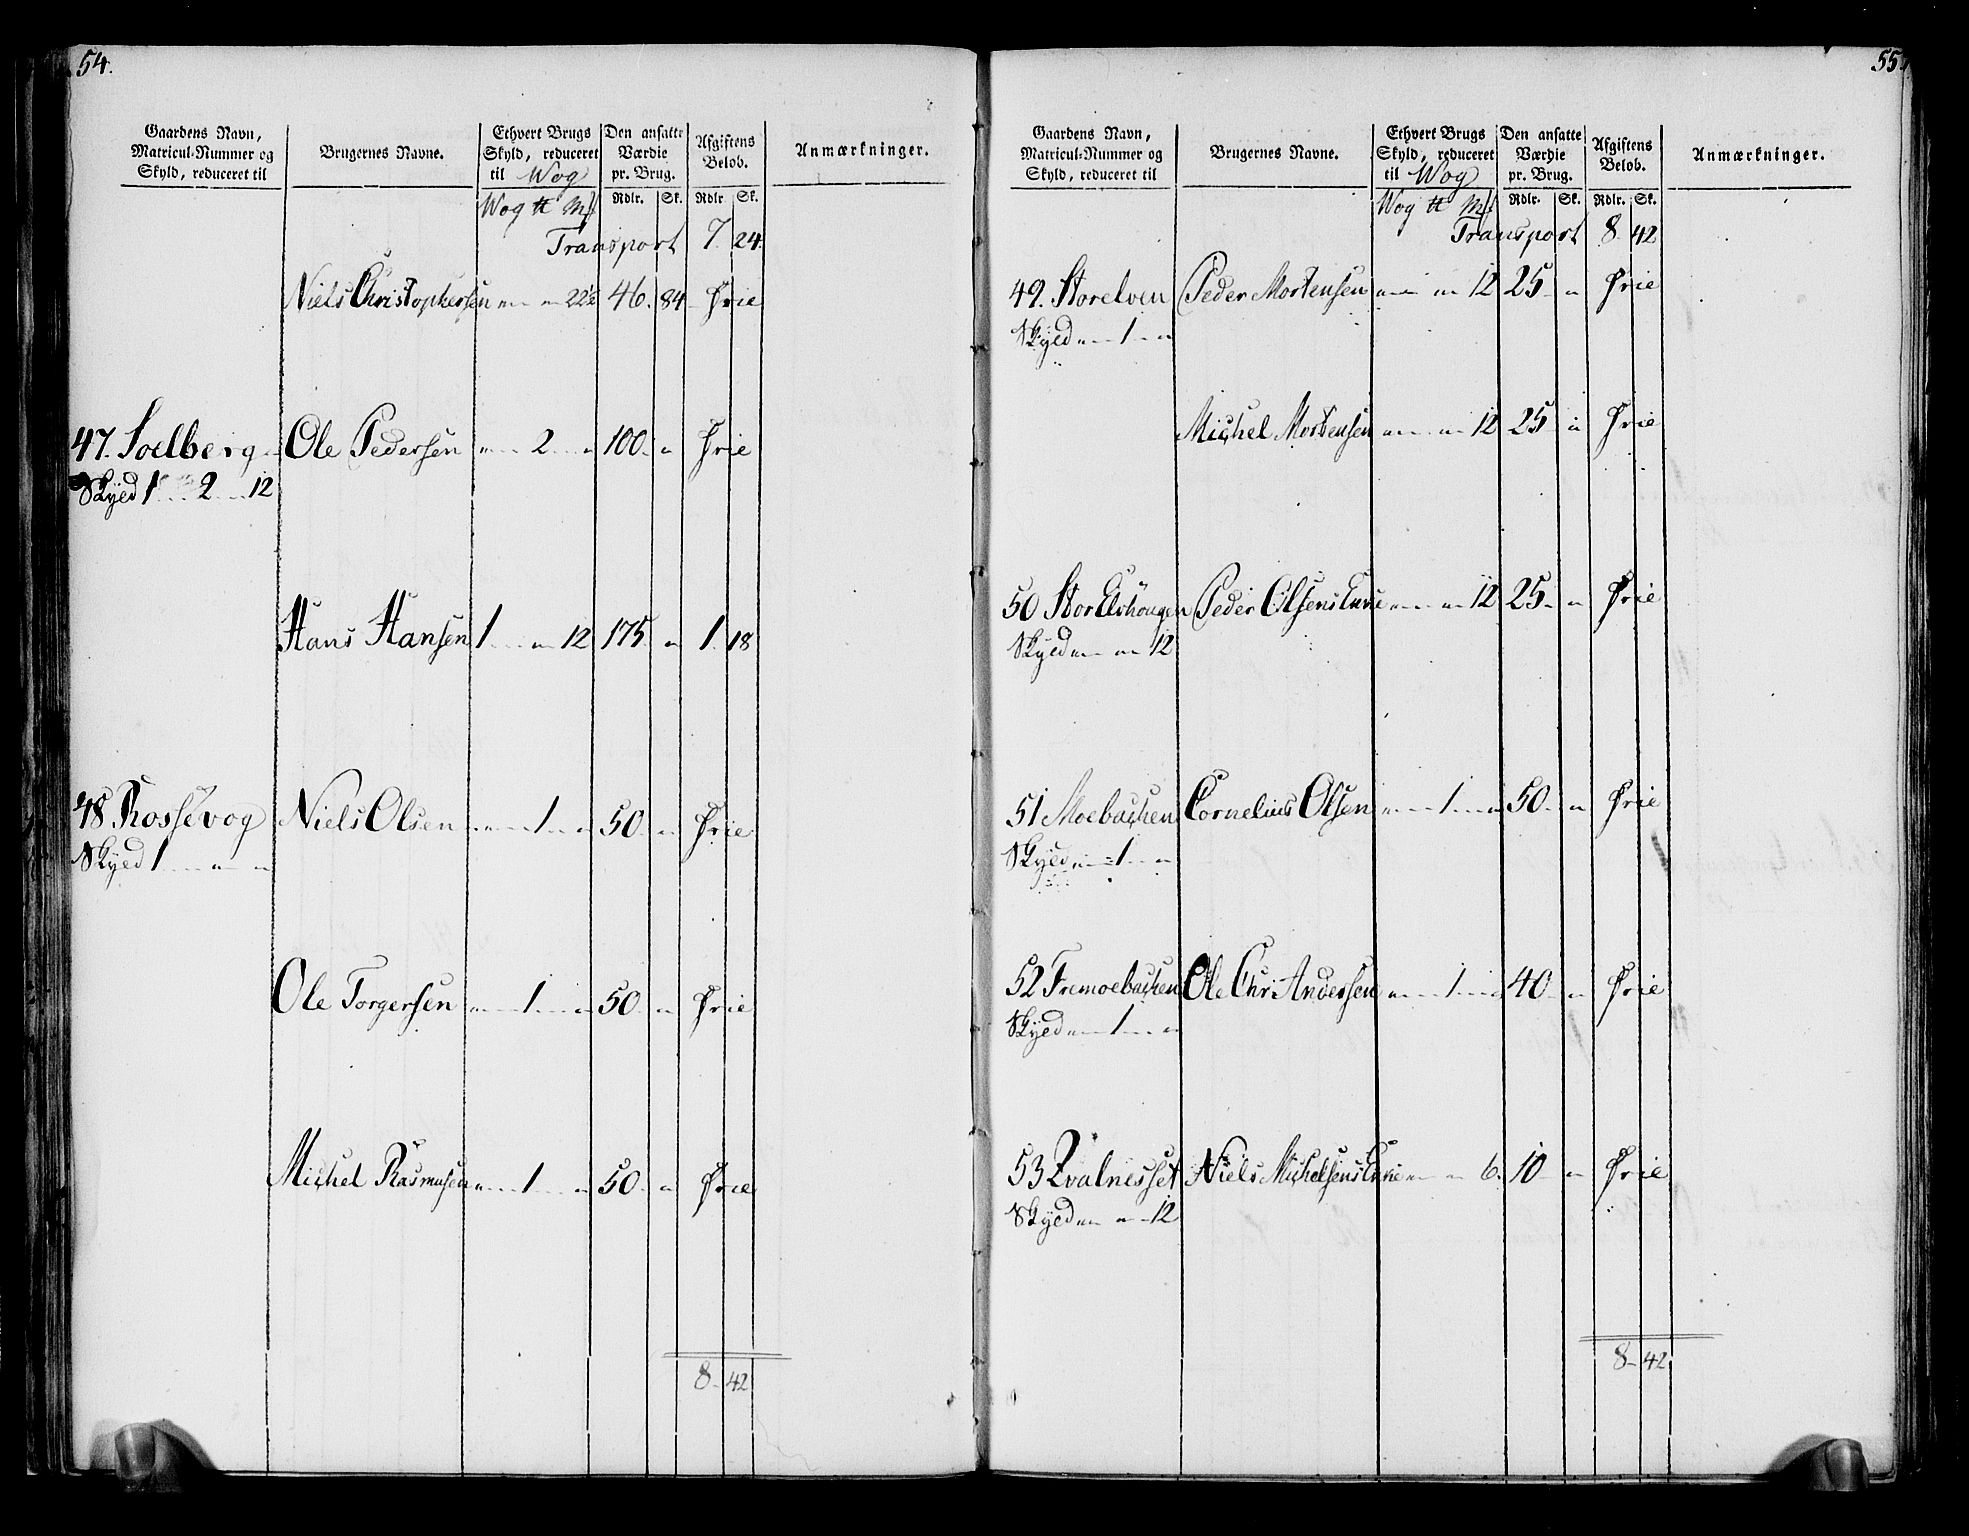 54.
Gaardens Navn, Matricul-Nummer og Skyld, reduceret til | Brugernes Navne. | Ethvert Brugs Skyld, reduceret til Wog | Den ansatte Værdie pr. Brug. | Afgiftens Beløb. | Anmærkninger.
Wog ℔ Mk | Rdlr. | Sk. | Rdlr. | Sk.
Transport 7. 24.
Niels Christophersen " " 22½ 46. 84 Frie
47. Soelberg Ole Pedersen " 2 " 100 " Frie
Skyld 1 2 12
Hans Hansen 1 " 12 175 " 1. 18
48 Rossevog Niels Olsen " 1 " 50 " Frie
Skyld 1 " "
Ole Torgersen " 1 " 50 " Frie
Michel Rasmusen " 1 " 50 " Frie
8 42
55.
Gaardens Navn, Matricul-Nummer og Skyld, reduceret til | Brugernes Navne. | Ethvert Brugs Skyld, reduceret til Wog | Den ansatte Værdie pr. Brug. | Afgiftens Beløb. | Anmærkninger.
Wog ℔ Mk | Rdlr. | Sk. | Rdlr. | Sk.
Transport 8. 42
49. Storelven Peder Mortensen " " 12 25 " Frie
Skyld " 1 "
Michel Mortensen " " 12 25 " Frie
50 Storelshougen Peder Olsens Enke " " 12 25 " Frie
Skyld " " 12
51 Moebachen Cornelius Olsen " 1 " 50 " Frie
Skyld " 1 "
52 Fremoebachen Ole Chr: Andersen " 1 " 40 " Frie
Skyld " 1 "
53 Qvalnesset Niels Michelsens Enke " " 6. 10 " Frie
Skyld " " 12
8 42